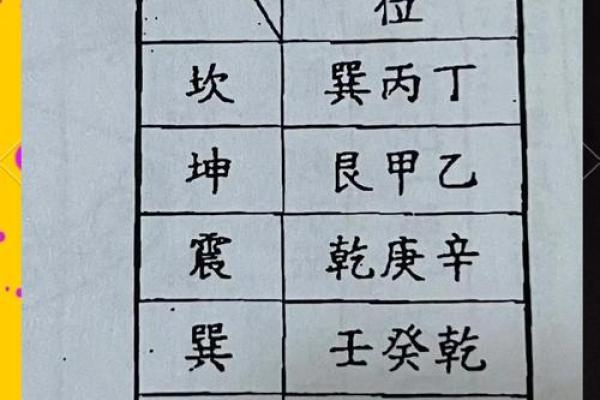 位
坎 巽丙丁
坤 艮甲乙
震 乾庚辛
巽 壬癸乾